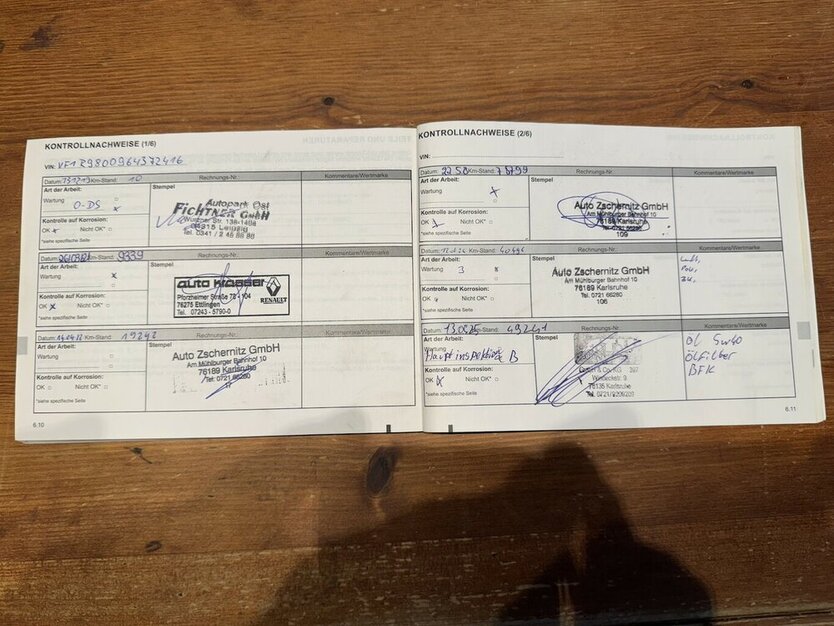 KONTROLLNACHWEISE (1/6)
VIN: VF1R9800964372416
Datum: Km-Stand: 10 Rechnungs-Nr. Kommentare/Wertmarke
Art der Arbeit:
Wartung
O-DS x
Kontrolle auf Korrosion:
OK x Nicht OK*
*siehe spezifische Seite
Stempel
Autopark Ost
FICHTNER GmbH
Wurzner Str.
04315 Leipzig
Tel. 0341 /
Datum: Km-Stand: 9339 Rechnungs-Nr. Kommentare/Wertmarke
Art der Arbeit:
Wartung x
Kontrolle auf Korrosion:
OK x Nicht OK*
*siehe spezifische Seite
Stempel
Pforzheimer Straße 73 - 104
76275 Ettlingen
Tel. 07243 - 5790-0
RENAULT
Datum: Km-Stand: 19242 Rechnungs-Nr. Kommentare/Wertmarke
Art der Arbeit:
Wartung
Kontrolle auf Korrosion:
OK Nicht OK*
*siehe spezifische Seite
Stempel
Auto Zschernitz GmbH
Am Mühlburger Bahnhof 10
76189 Karlsruhe
Tel. 0721 66280
17
6.10
KONTROLLNACHWEISE (2/6)
VIN:
Datum: Km-Stand: Rechnungs-Nr. Kommentare/Wertmarke
Art der Arbeit:
Wartung x
Kontrolle auf Korrosion:
OK Nicht OK*
*siehe spezifische Seite
Stempel
Auto Zschernitz GmbH
Am Mühlburger Bahnhof 10
76189 Karlsruhe
Tel. 0721 66280
109
Datum: Km-Stand: Rechnungs-Nr. Kommentare/Wertmarke
Art der Arbeit:
Wartung 3 x
Kontrolle auf Korrosion:
OK Nicht OK*
*siehe spezifische Seite
Stempel
Auto Zschernitz GmbH
Am Mühlburger Bahnhof 10
76189 Karlsruhe
Tel. 0721 66280
106
Luft,
Datum: Km-Stand: 49241 Rechnungs-Nr. Kommentare/Wertmarke
Art der Arbeit:
Hauptinspektion B
Kontrolle auf Korrosion:
OK x Nicht OK*
*siehe spezifische Seite
Stempel
GmbH & Co. KG
76135 Karlsruhe
Öl 5w40
Ölfilter
BFK
6.11